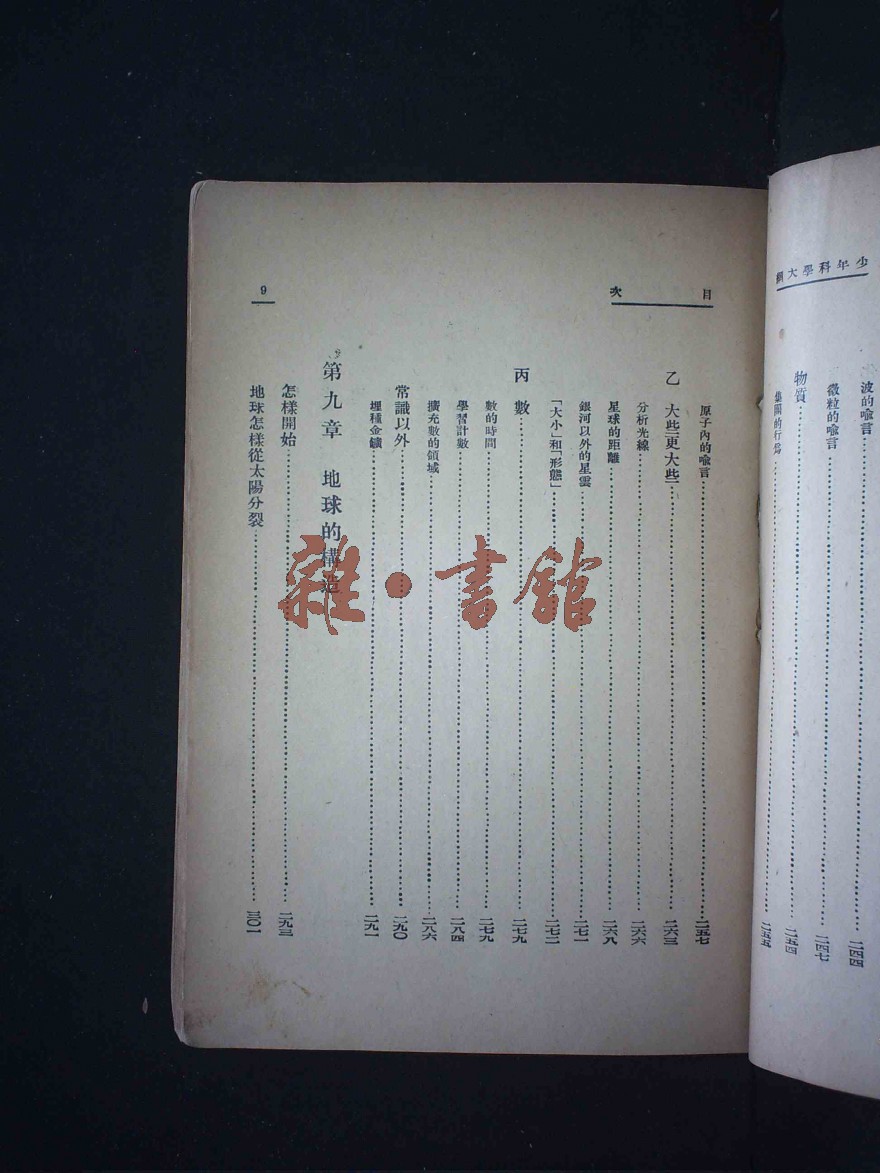 少年科學大綱
波的喩言 二四四
微粒的喩言 二四七
物質 二五四
集團的行爲 二五五
目次
9
原子內的喩言 二五七
乙 大些「更大些」 二六三
分析光線 二六六
星球的距離 二六八
銀河以外的星雲 二七一
「大小」和「形態」 二七二
丙 數 二七九
數的時間 二七九
學習計數 二八四
擴充數的領域 二八六
常識以外 二九〇
埋種金鑛 二九一
第九章 地球的構造
怎樣開始 二九三
地球怎樣從太陽分裂 三〇一
雜·書館